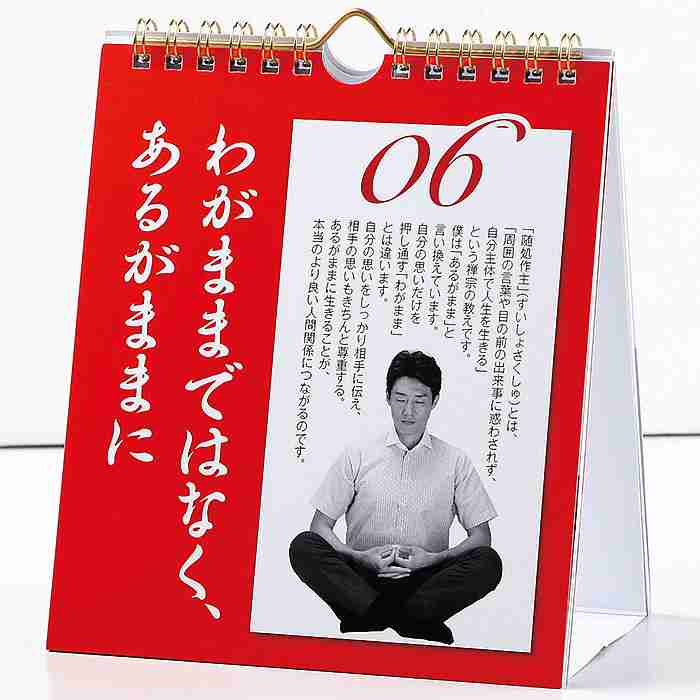 わがままではなく、
あるがままに
06
「随処作主」(ずいしょさくしゅ)とは、
「周囲の言葉や目の前の出来事に惑わされず、
自分主体で人生を生きる」
という禅宗の教えです。
僕は「あるがまま」と
言い換えています。
自分の思いだけを
押し通す「わがまま」
とは違います。
自分の思いをしっかり相手に伝え、
相手の思いもきちんと尊重する。
あるがままに生きることが、
本当のより良い人間関係につながるのです。